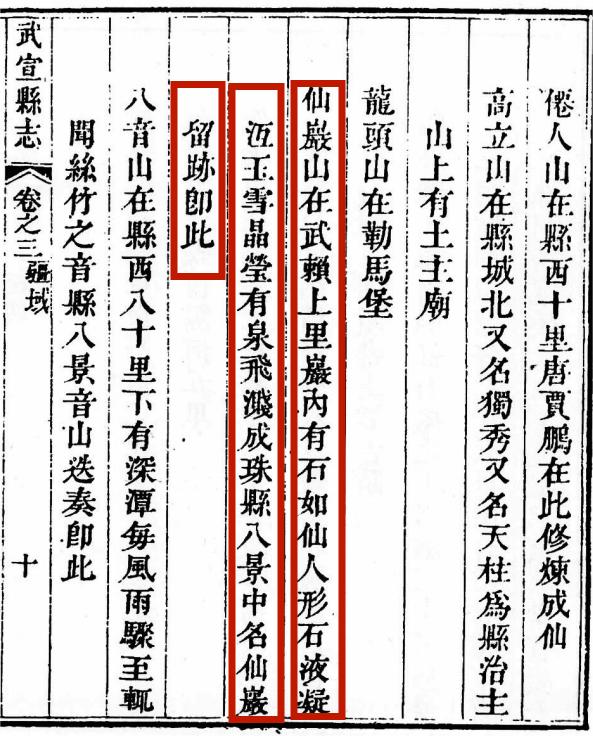 僊人山在縣西十里唐賈鵬在此修煉成仙
高立山在縣城北又名獨秀又名天柱為縣治主
山上有土主廟
龍頭山在勒馬堡
仙巖山在武賴上里巖內有石如仙人形石液凝
沍玉雪晶瑩有泉飛濺成珠縣八景中名仙巖
留跡卽此
八音山在縣西八十里下有深潭每風雨驟至輒
聞絲竹之音縣八景音山迭奏卽此
武宣縣志 卷之三 疆域 十